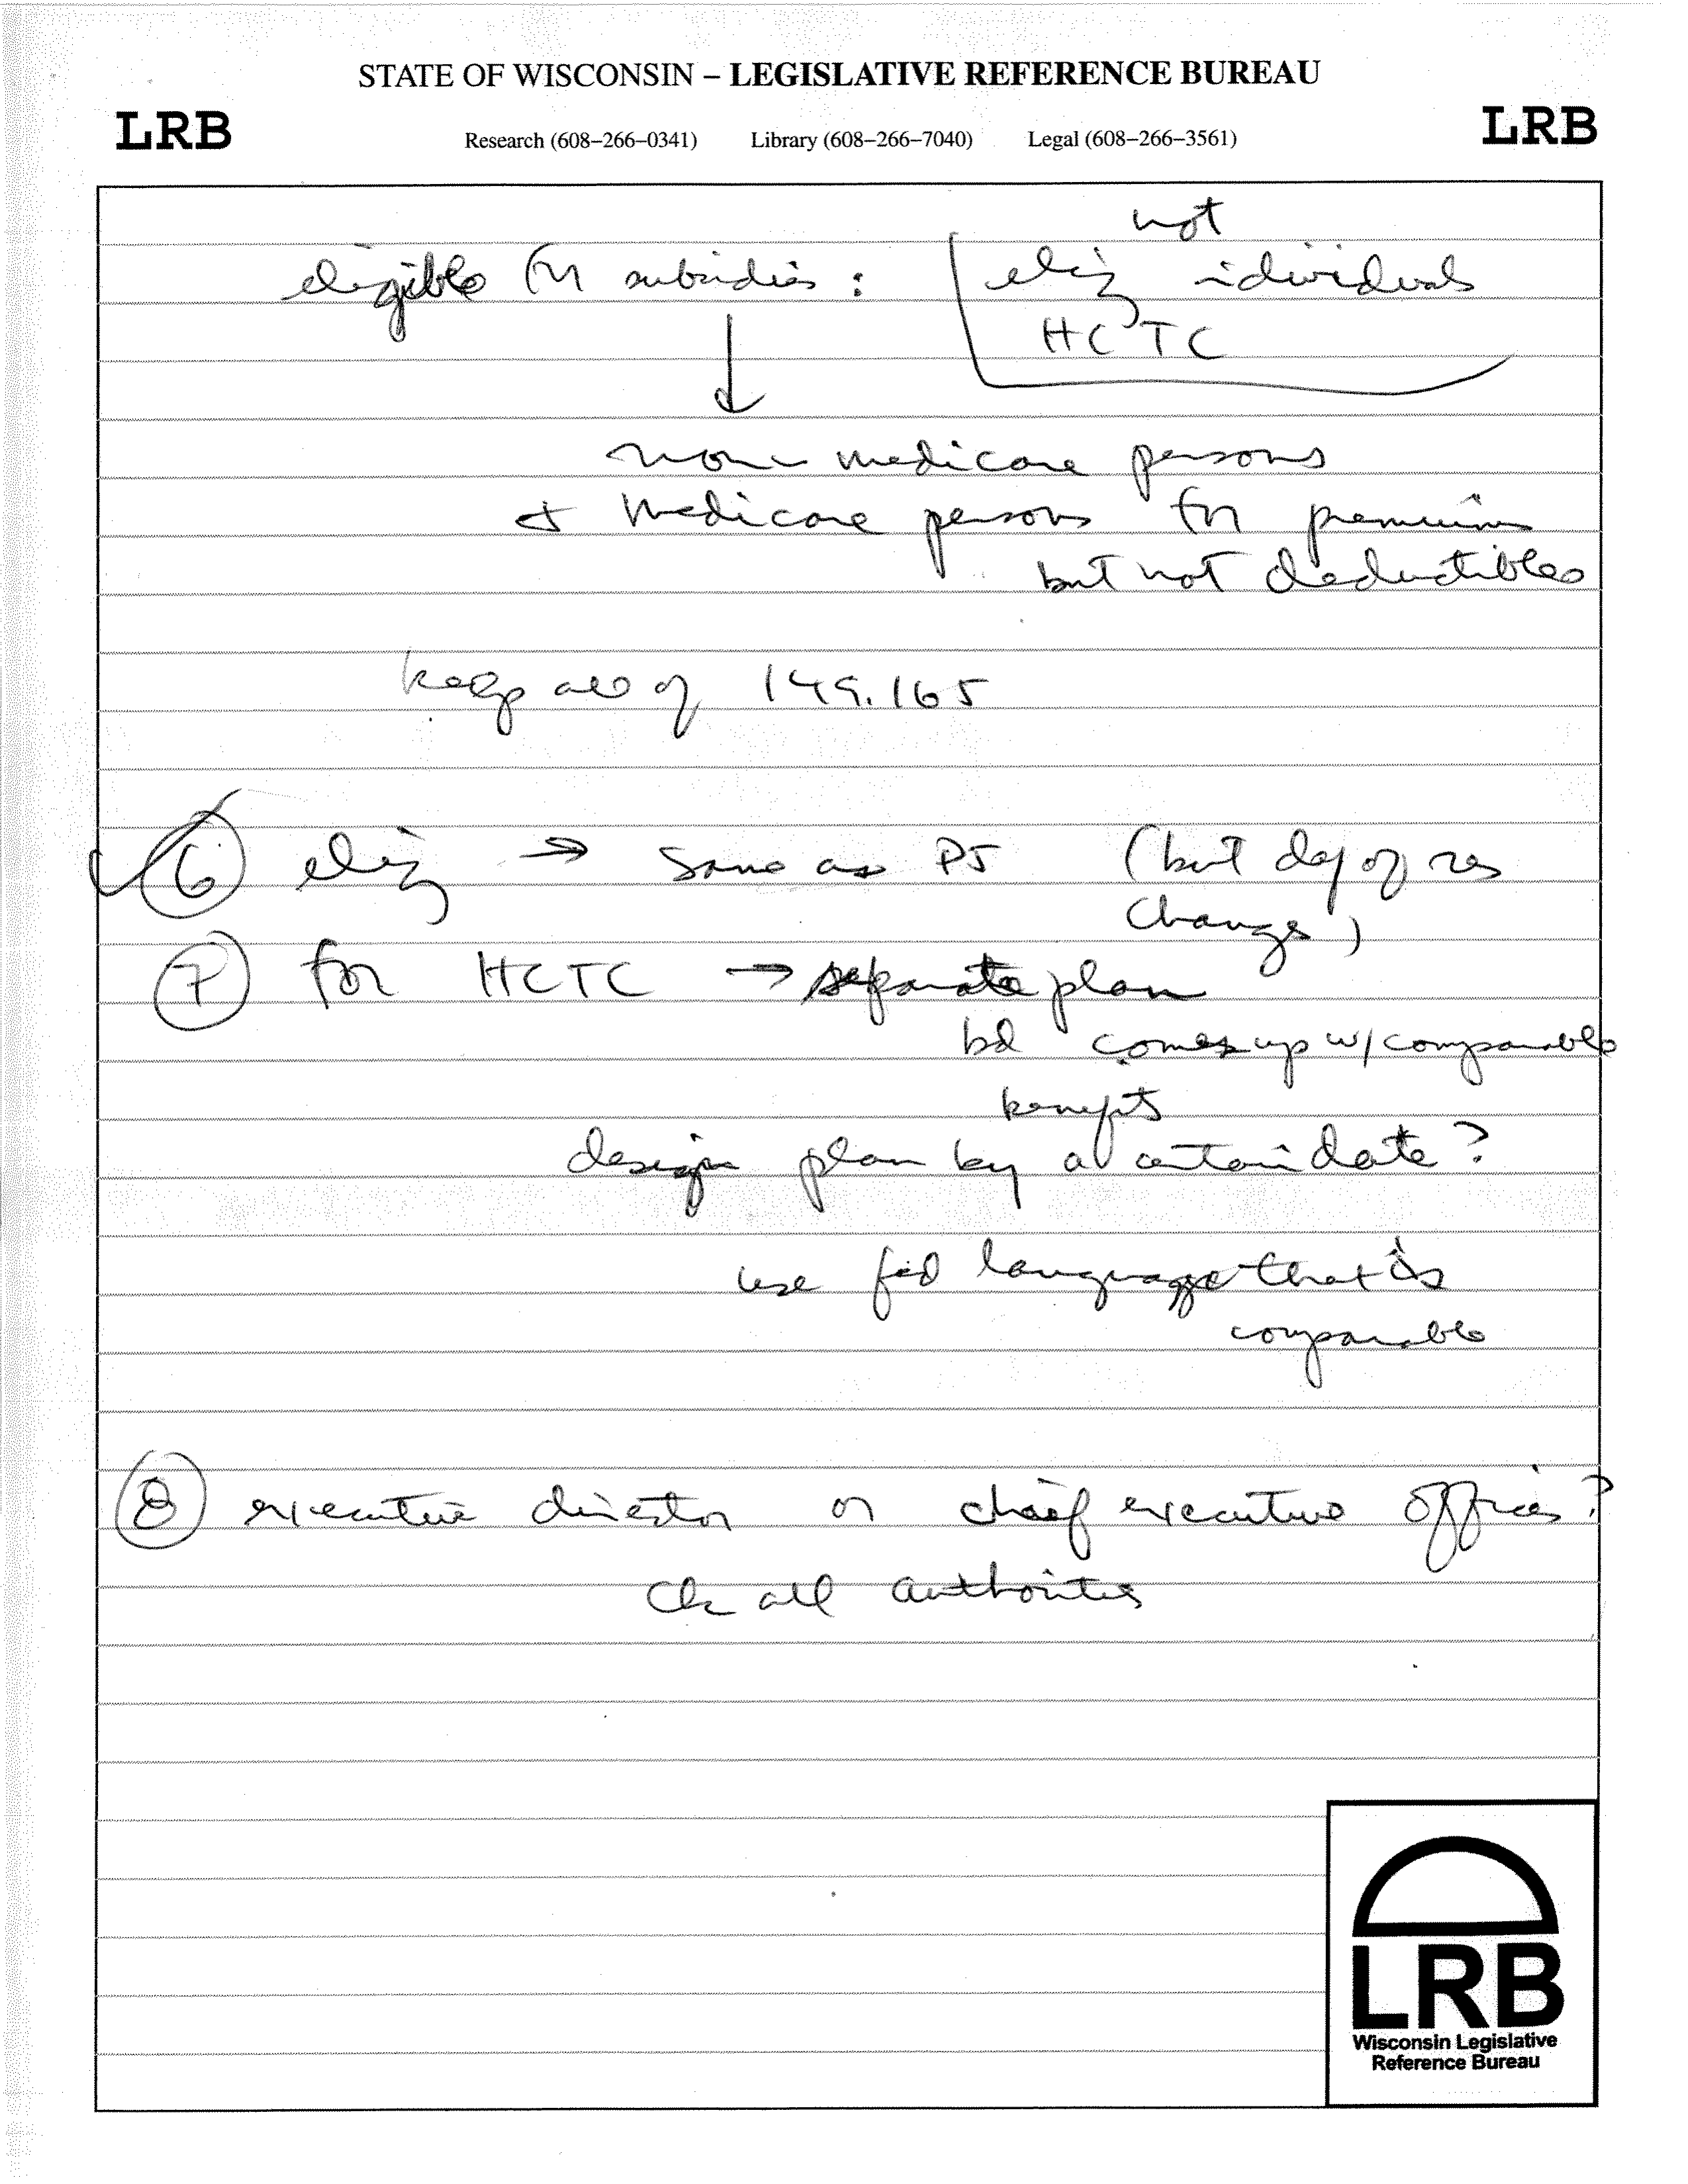 STATE OF WISCONSIN – LEGISLATIVE REFERENCE BUREAU
LRB
Research (608–266–0341) Library (608–266–7040) Legal (608–266–3561)
LRB
not
eligible for subsidies : elig individuals
HCTC
↓
non-medicare persons
+ medicare persons for premiums
but not deductibles
keep all of 149.165
6 elig → same as PJ (but def of res
change)
7 for HCTC → separate plan
bd comes up w/ comparable
benefits
design plan by a certain date?
use fed language that is
comparable
8 executive director or chief executive officer?
Ck all authorities
LRB
Wisconsin Legislative
Reference Bureau